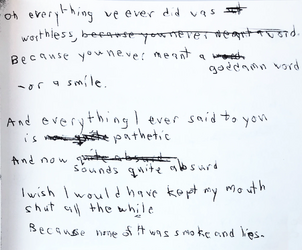 oh everything we ever did was
worthless, because you never meant a word.
Because you never meant a
goddamn word
- or a smile.
And everything I ever said to you
is pathetic
And now quite absurd
sounds quite absurd
I wish I would have kept my mouth
shut all the while
Because none of it was smoke and lies.